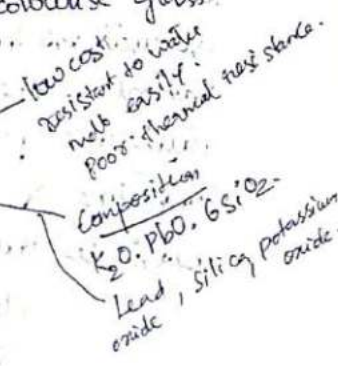 colourise glass
low cost
resistant to water
melt easily.
poor thermal resistance.
Composition
K₂O. PbO. 6SiO₂.
Lead, silica, potassium
oxide oxide.